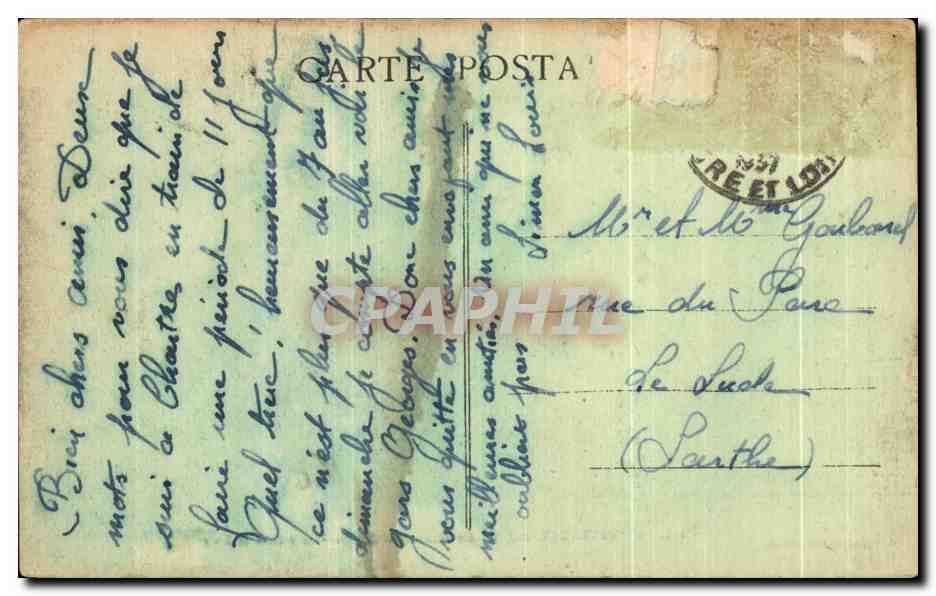 CARTE POSTA
Bien chers amis, Deux
mots pour vous dire que je
suis à Chartres en train de
faire une période de 11 jours
Quel truc, heureusement que
ce n'est plus que du 7 au jus
dimanche je compte aller voir le
gars Georges. Donc chers amis je
vous quitte en vous envoyant mes
meilleures amitiés. Un ami qui ne vous
oublient pas
Simon Louis
1937
RE ET LOI
Mr et Mme
rue du Parc
Le Lude
(Sarthe)
CPAPHIL